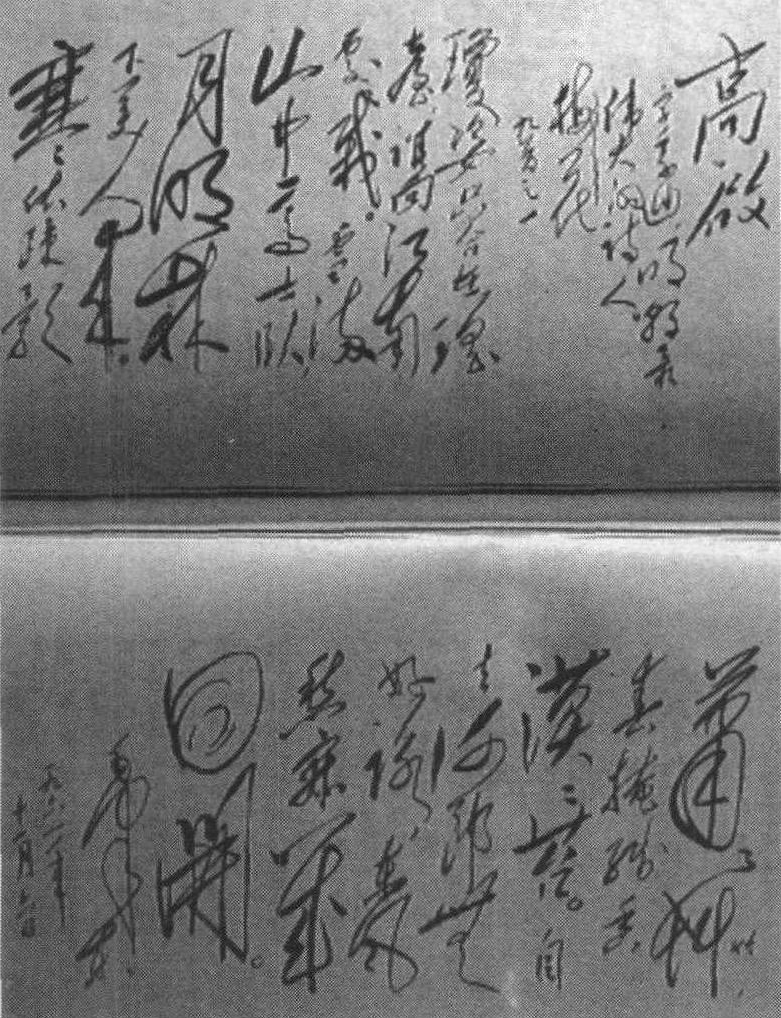 高啟
字季迪,明朝最
伟大的诗人。
梅花
九首之一
瓊姿只合在瑶
臺,谁向江南
處々栽。雪满
山中高士臥,
月明林
下美人来。
寒依疏影
蕭々竹,
春掩残香
漠々苔。自
去何郎無
好詠,東風
愁寂幾
回開。
毛泽东
一九六一年
十一月六日